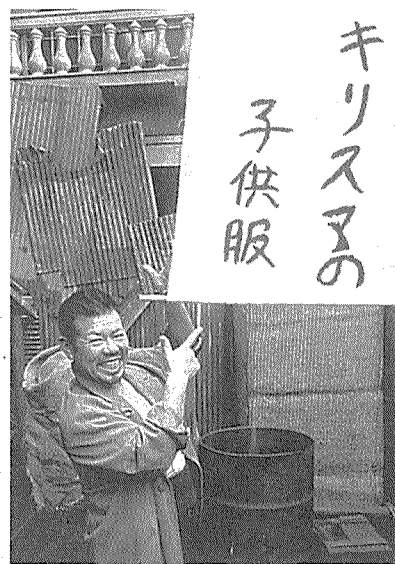 キリスマの
子供服